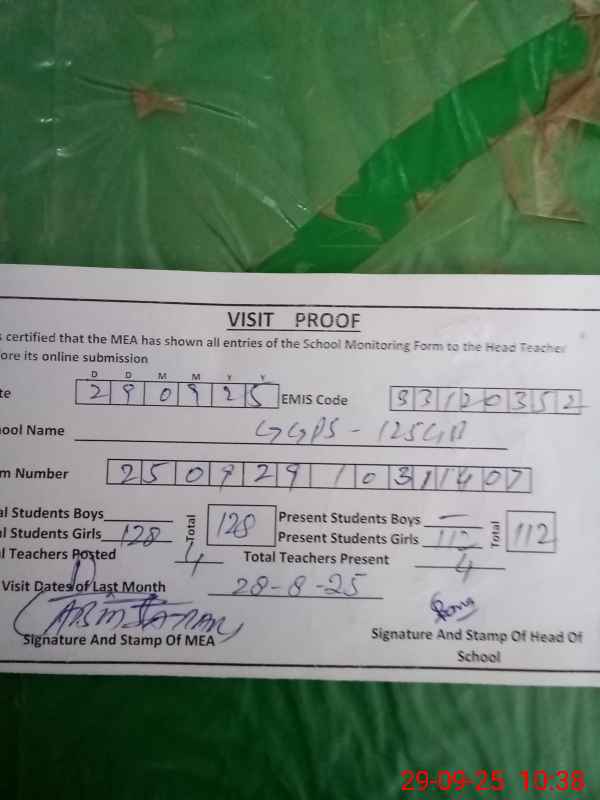 VISIT PROOF
certified that the MEA has shown all entries of the School Monitoring Form to the Head Teacher
ore its online submission
D D M M Y Y
te 290925 EMIS Code 33120352
ool Name GGPS - 125GB
m Number 250929 1031407
al Students Boys Total 128 Present Students Boys — Total 112
al Students Girls 128 Present Students Girls 112
l Teachers Posted 4 Total Teachers Present 4
Visit Dates of Last Month 28-8-25
Signature And Stamp Of MEA
Signature And Stamp Of Head Of
School
29-09-25 10:38